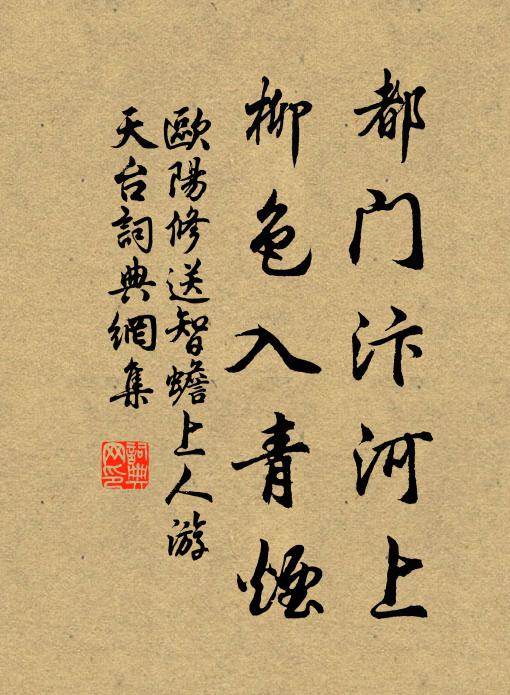 都门汴河上
柳色入青烟
歐陽修送智蟾上人游
天台詞典網集
詞典网印